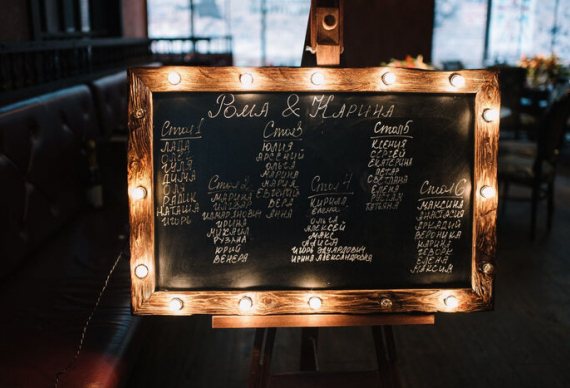 Рома & Карина
Стол 1
ЛАДА
ДИАНА
РАДИК
НАТАША
ИГОРЬ
Стол 2
МАРИНА
ИЛЬДАР
МИХАИЛ
РУЗАНА
ЮРИЙ
ВЕНЕРА
Стол 3
ЮЛИЯ
АРСЕНИЙ
ОЛЬГА
МАРИНА
МАРИЯ
ВЕРА
АННА
Стол 4
КИРИЛЛ
ЕЛЕНА
ОЛЬГА
АЛЕКСЕЙ
МАКС
АЛИСА
ИГОРЬ ЭДУАРДОВИЧ
ИРИНА АЛЕКСАНДРОВНА
Стол 5
КСЕНИЯ
СЕРГЕЙ
ЕКАТЕРИНА
ПЁТР
СВЕТЛАНА
ЕЛЕНА
ТАТЬЯНА
Стол 6
МАКСИМ
АНАСТАСИЯ
АРКАДИЙ
ВЕРОНИКА
МАРИНА
ЕЛЕНА
МАКСИМ